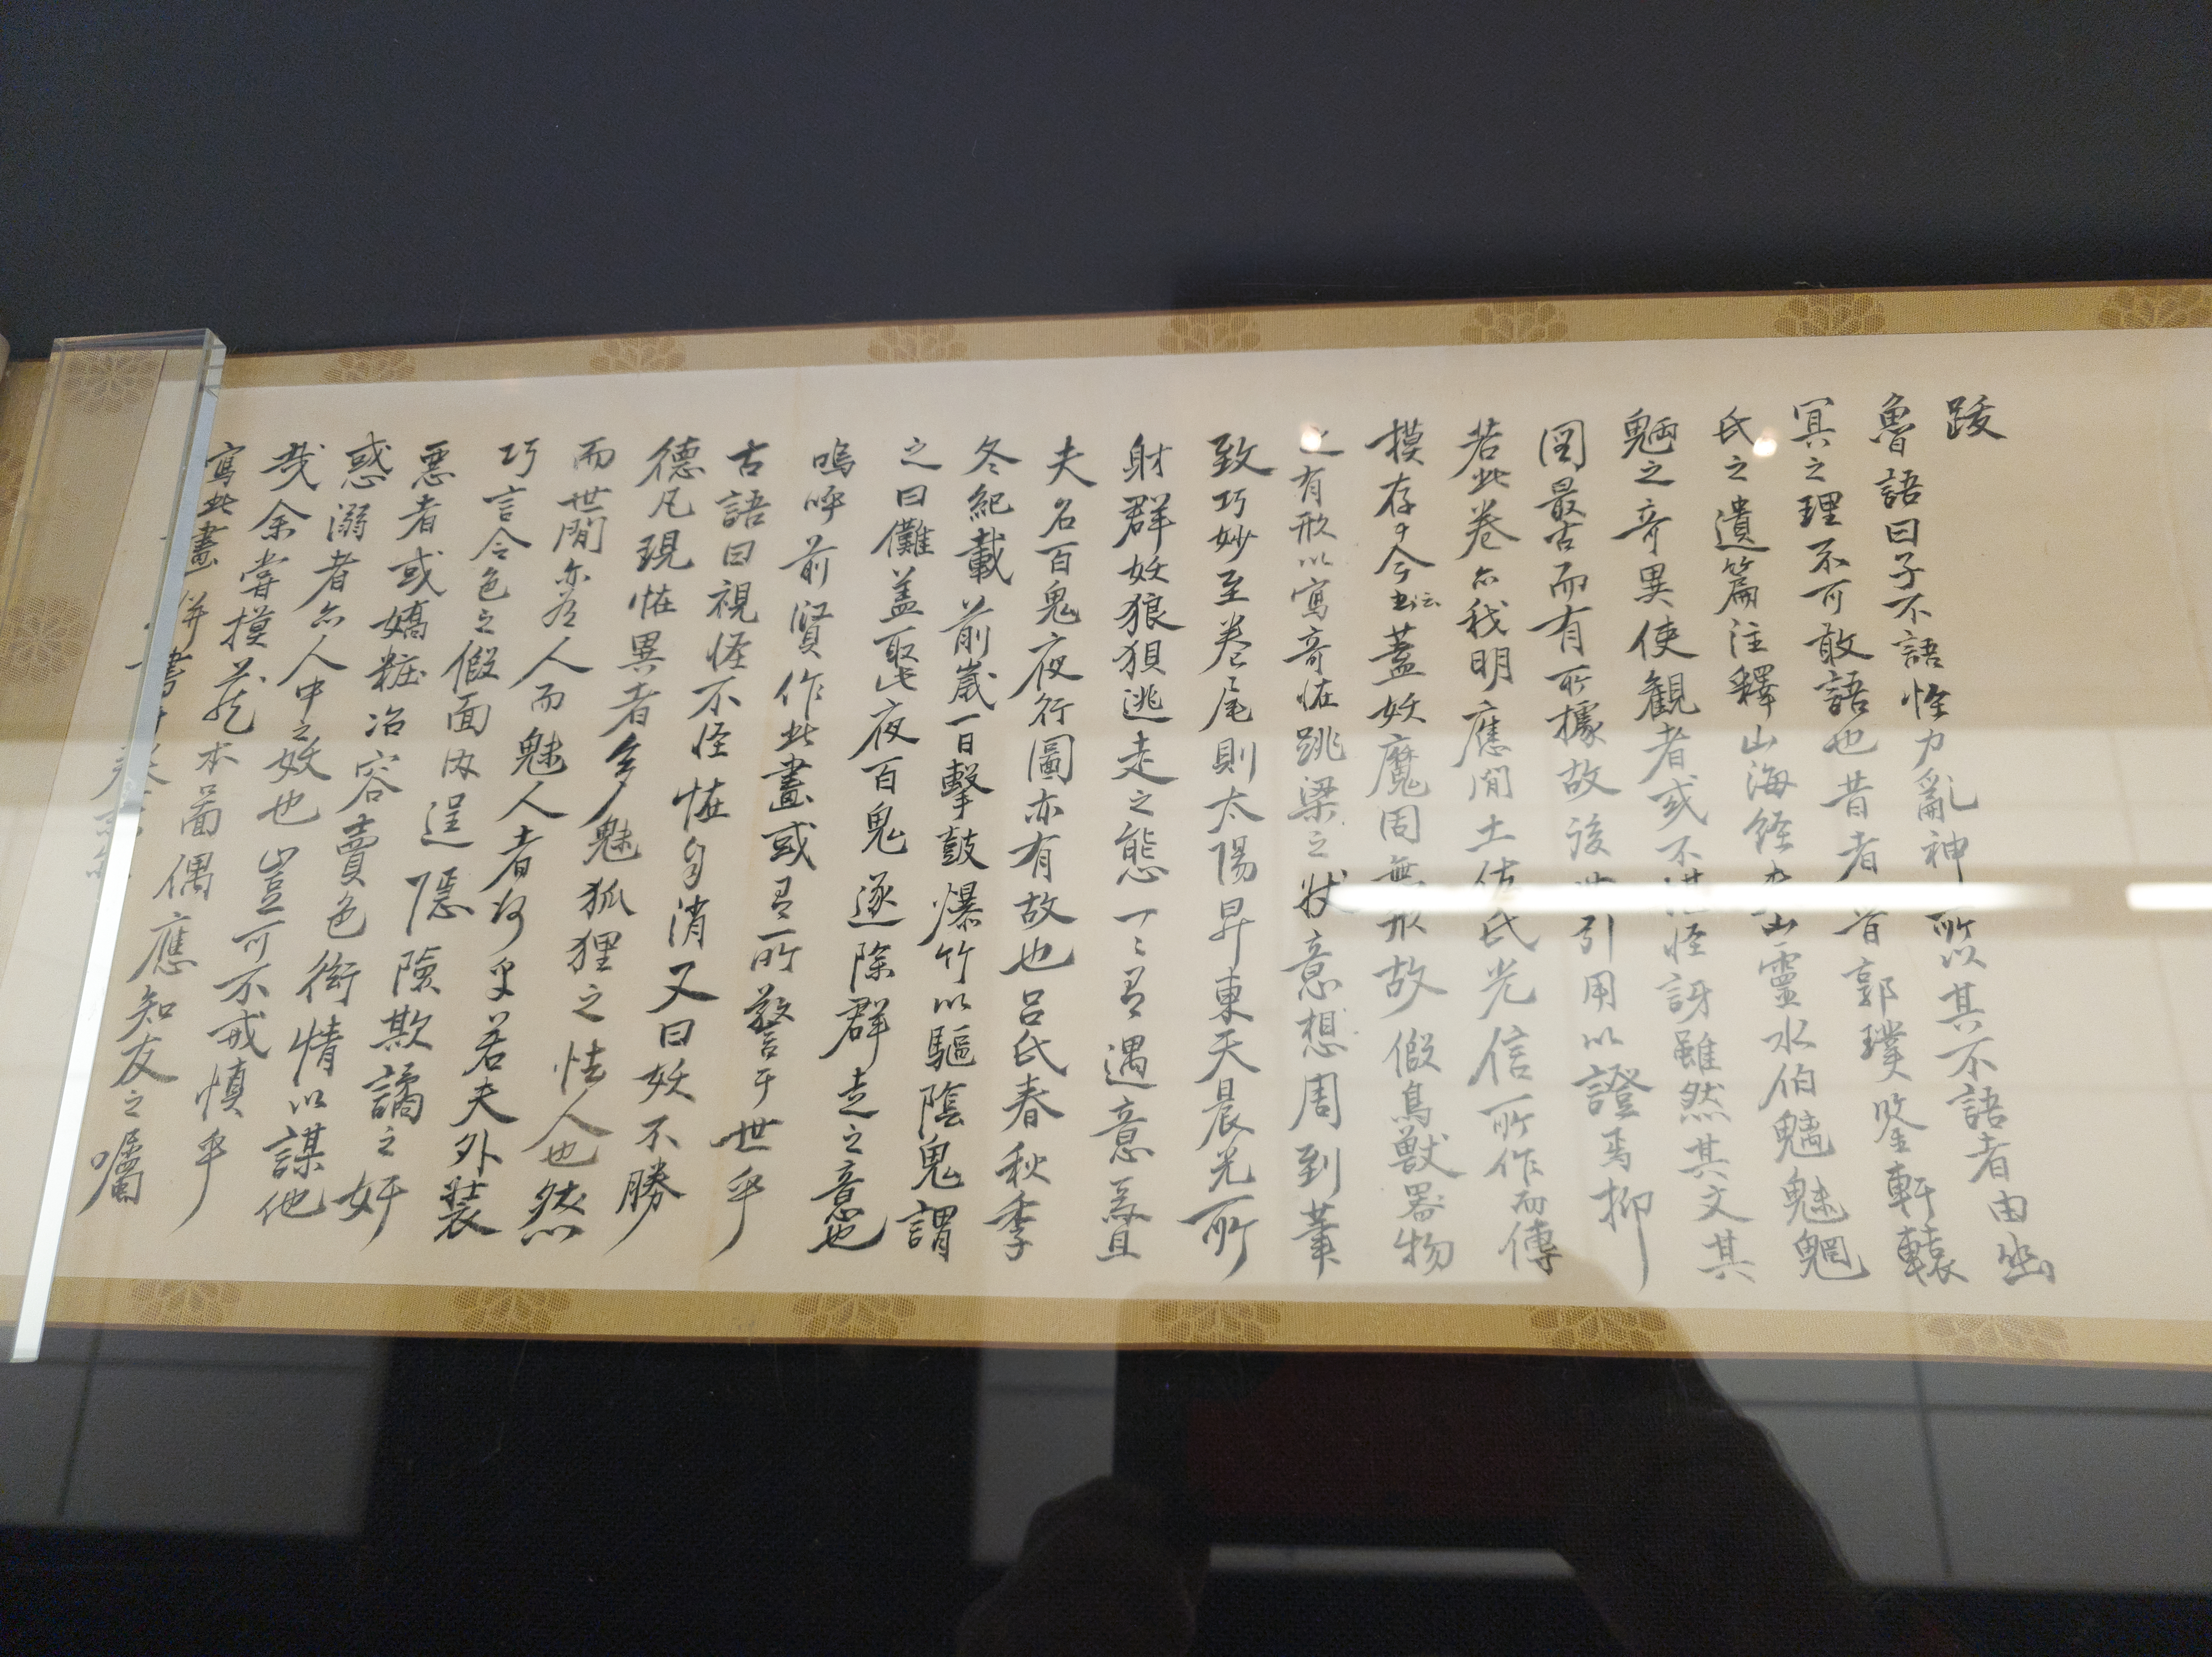 跋
魯語曰子不語怪力亂神所以其不語者由幽
冥之理不可敢語也昔者首郭璞鑒軒轅
氏之遺篇注釋山海經 山靈水伯魑魅魍
魎之奇異使観者或不 怪訝雖然其文其
図最古而有所據故後 引用以證焉抑
若此卷亦我明應間土佐氏光信所作而傳
摸存于今書云蓋妖魔固無形故假鳥獣器物
之有形以寫奇怪跳梁之状意想周到筆
致巧妙至巻尾則太陽昇東天晨光所
射群妖狼狽逃走之態一々有遇意焉且
夫名百鬼夜行圖亦有故也呂氏春秋季
冬紀載前歳一日擊鼓爆竹以驅陰鬼謂
之曰儺蓋聖夜百鬼逐除群走之意也
嗚呼前賢作此畫或有所警于世乎
古語曰視怪不怪怪自消又曰妖不勝
德凡現怪異者多魅狐狸之怯人也然
而世間亦有人而魅人者何乎若夫外装
巧言令色之假面内逞隠險欺譎之奸
悪者或嬌粧冶容賣色衒情以謀他
惑溺者亦人中之妖也豈可不戒慎乎
哉余嘗摸 本啚偶應知友之囑
寫此畫併書